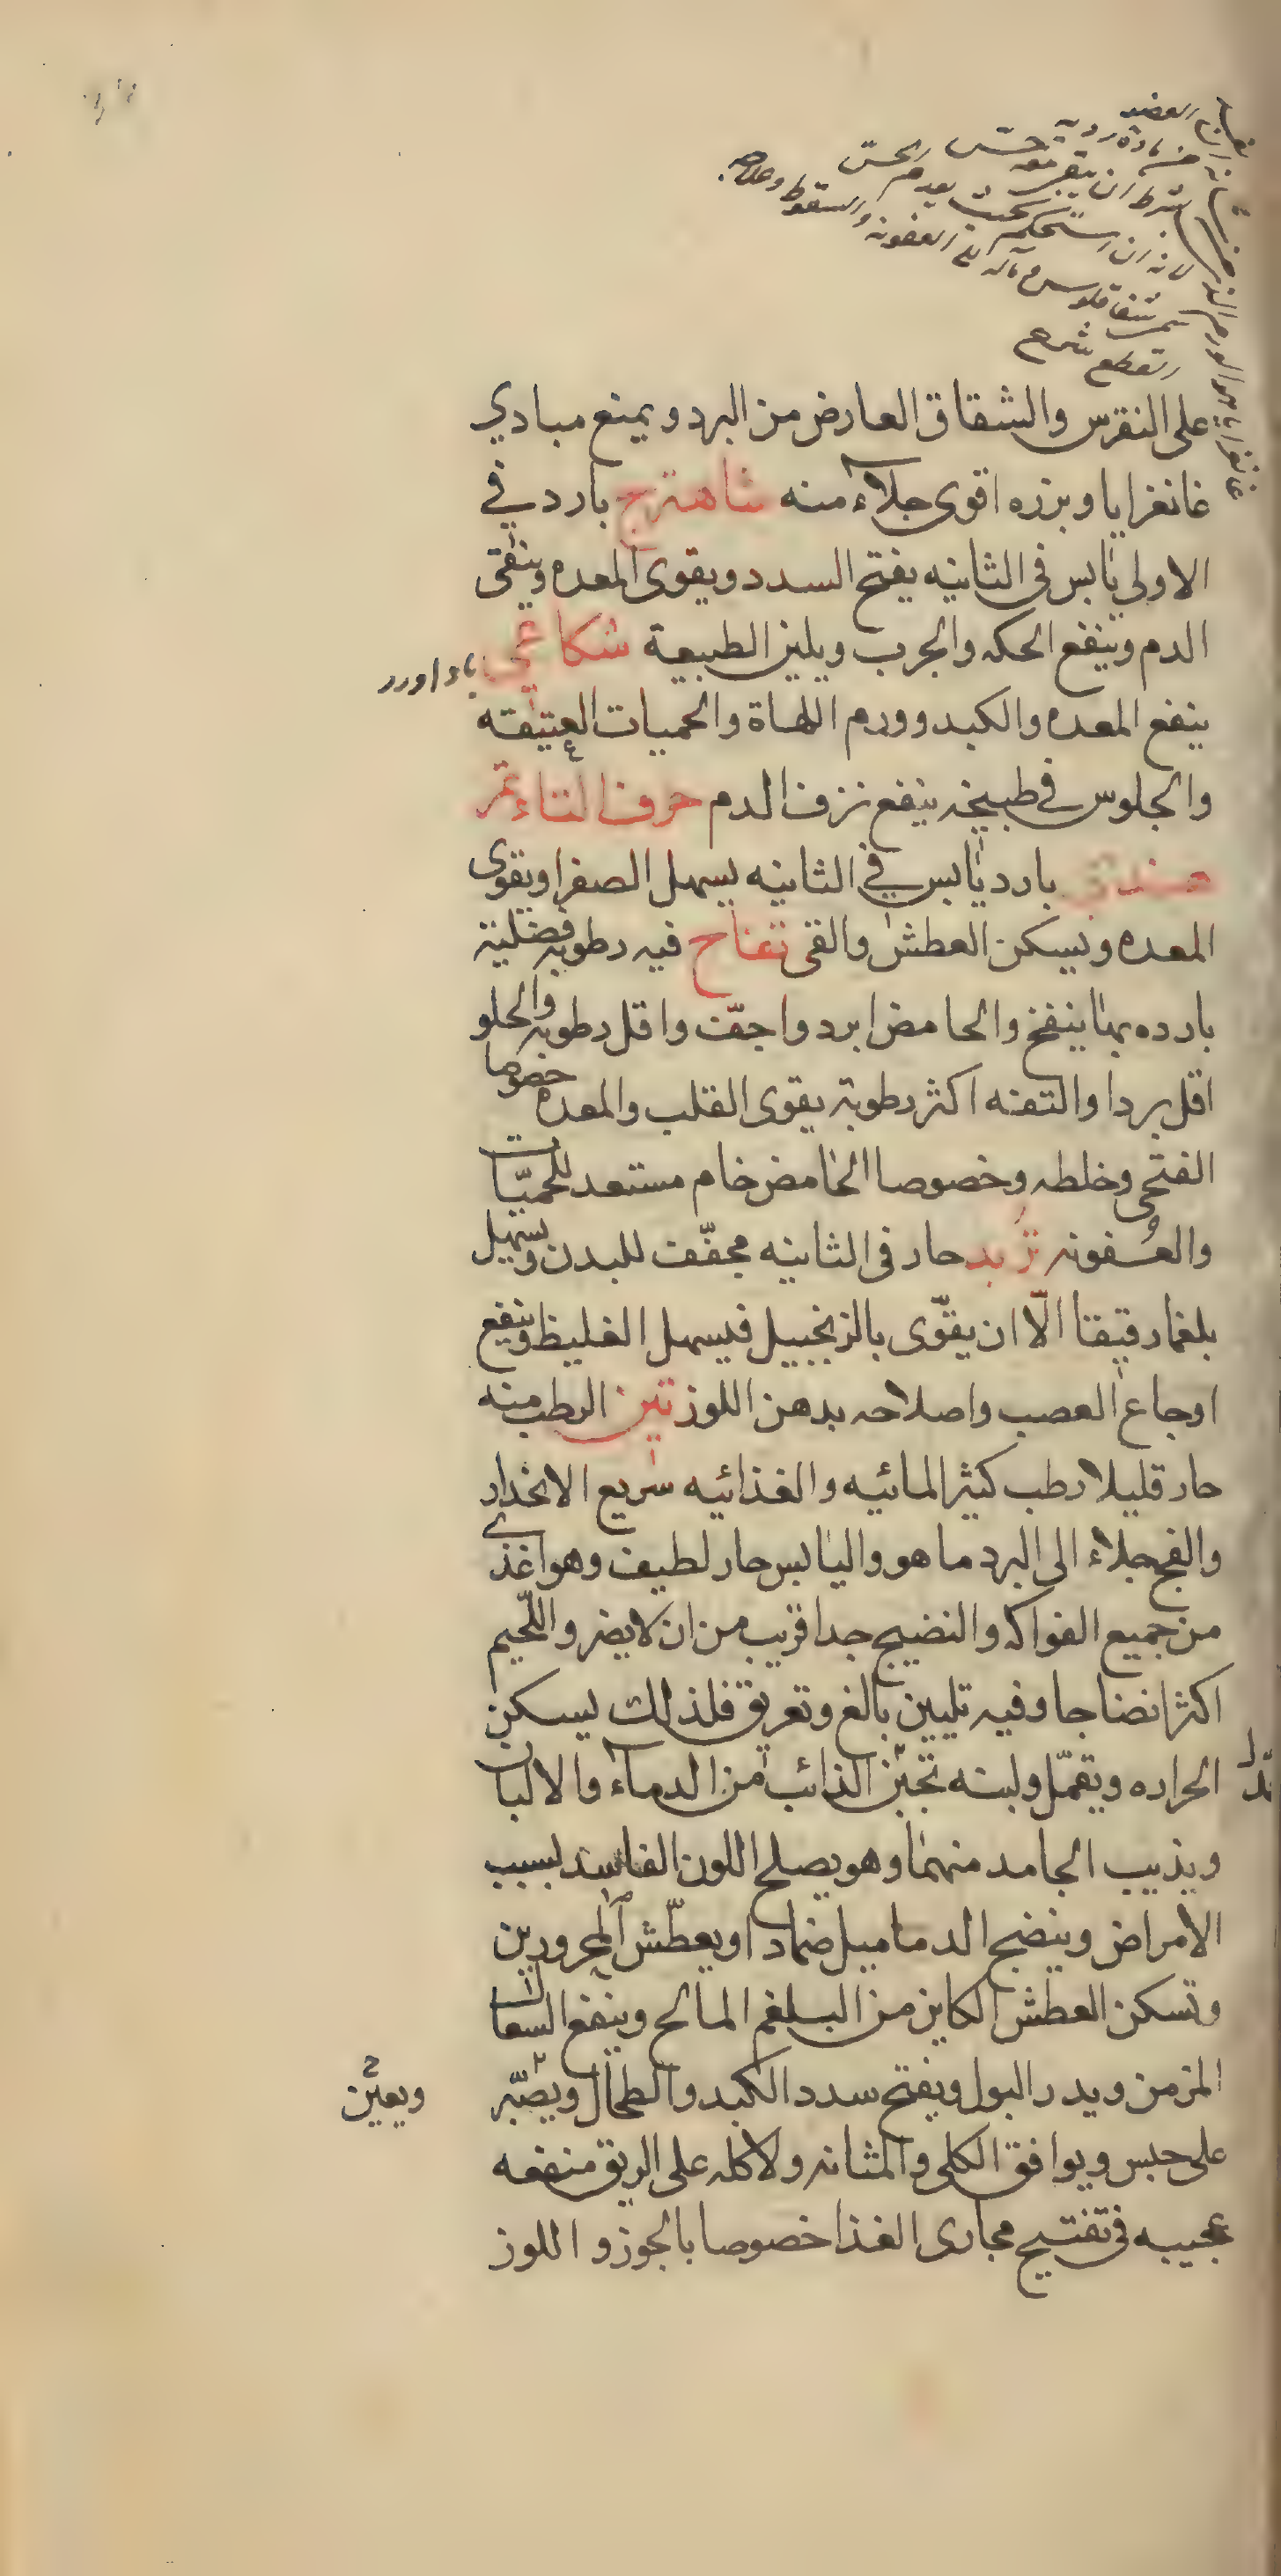 على النقرس والشقاق العارض من البرد ويمنع مبادي
غانغرايا وبزره اقوى جلاء منه شاهترج بارد في
الاولى يابس فى الثانيه يفتح السدد ويقوى المعده وينقى
الدم وينفع الحكه والجرب ويلين الطبيعة شكاعى
باداورد
ينفع المعده والكبد وورم اللهاة والحميات العتيقه
والجلوس في طبيخه ينفع نزف الدم حرف التاء تمر
هندى بارد يابس في الثانيه يسهل الصفرا ويقوى
المعده ويسكن العطش والقى تفاح فيه رطوبه فضلية
بارده بها ينفخ والحامض ابرد واجفّ واقل رطوبه والحلو
اقل بردا والتفه اكثر رطوبة يقوى القلب والمعده خصوصا
الفتحى وخلطه وخصوصا الحامض خام مستعد للحميّات
والعفونه تربد حار فى الثانيه مجفّف للبدن ويسهل
بلغما رقيقا الّا ان يقوّى بالزنجبيل فيسهل الغليظ وينفع
اوجاع العصب واصلاحه بدهن اللوز تين الرطب منه
حار قليلا رطب كثير المائيه والغذائيه سريع الانحدار
والفج جلاء الى البرد ما هو واليابس حار لطيف وهو اغذى
من جميع الفواكه والنضيج جدا قريب من ان لا يضر واللّحيم
اكثر انضاجا وفيه تليين بالغ وتعريق فلذلك يسكن
الحراره ويقمّل ولبنه يجبّن الذائب من الدماء والالبان
ويذيب الجامد منهما وهو يصلح اللون الفاسد بسبب
الامراض وينضج الدماميل ضمادا ويعطّش المحرورين
وتسكن العطش الكاين من البلغم المالح وينفع السعال
المزمن ويدر البول ويفتح سدد الكبد والطحال ويصّبر
ويعيّن
على حبس ويوافق الكلى والمثانه ولاكله على الريق منفعه
عجيبه فى تفتيح مجارى الغذا خصوصا بالجوز واللوز